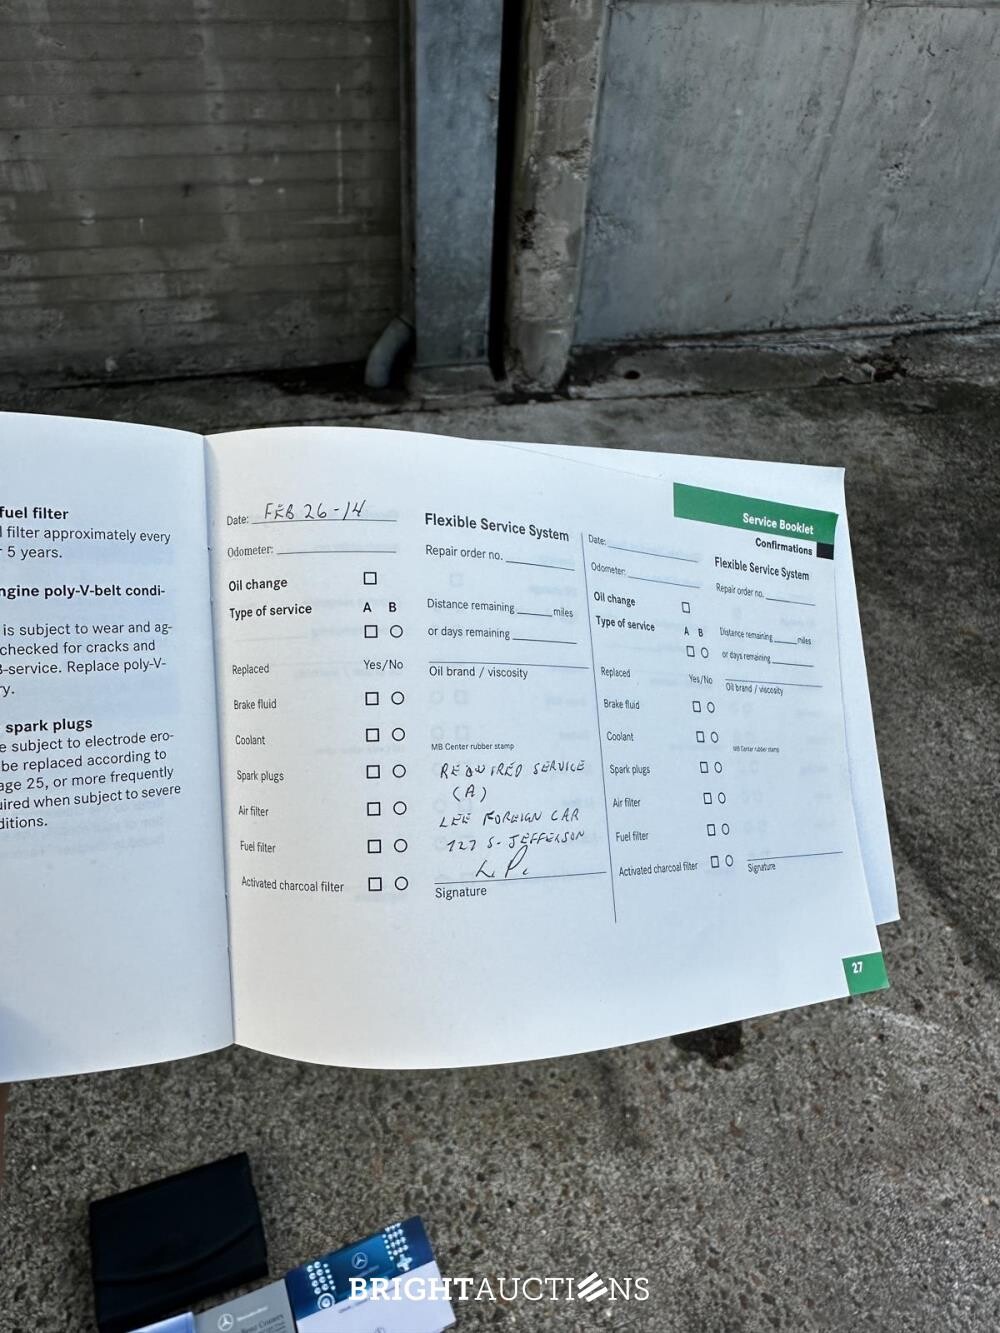 fuel filter
filter approximately every
5 years.
ngine poly-V-belt condi-
is subject to wear and ag-
checked for cracks and
B-service. Replace poly-V-
y.
spark plugs
e subject to electrode ero-
be replaced according to
age 25, or more frequently
uired when subject to severe
ditions.
Date: FEB 26-14
Odometer:
Oil change
Type of service A B
Replaced Yes/No
Brake fluid
Coolant
Spark plugs
Air filter
Fuel filter
Activated charcoal filter
Flexible Service System
Repair order no.
Distance remaining miles
or days remaining
Oil brand / viscosity
MB Center rubber stamp
REQUIRED SERVICE
(A)
LEE FOREIGN CAR
127 S. JEFFERSON
L.P.
Signature
Service Booklet
Confirmations
Date:
Odometer:
Oil change
Type of service A B
Replaced Yes/No
Brake fluid
Coolant
Spark plugs
Air filter
Fuel filter
Activated charcoal filter
Flexible Service System
Repair order no.
Distance remaining miles
or days remaining
Oil brand / viscosity
MB Center rubber stamp
Signature
27
Mercedes-Benz
BRIGHTAUCTIONS